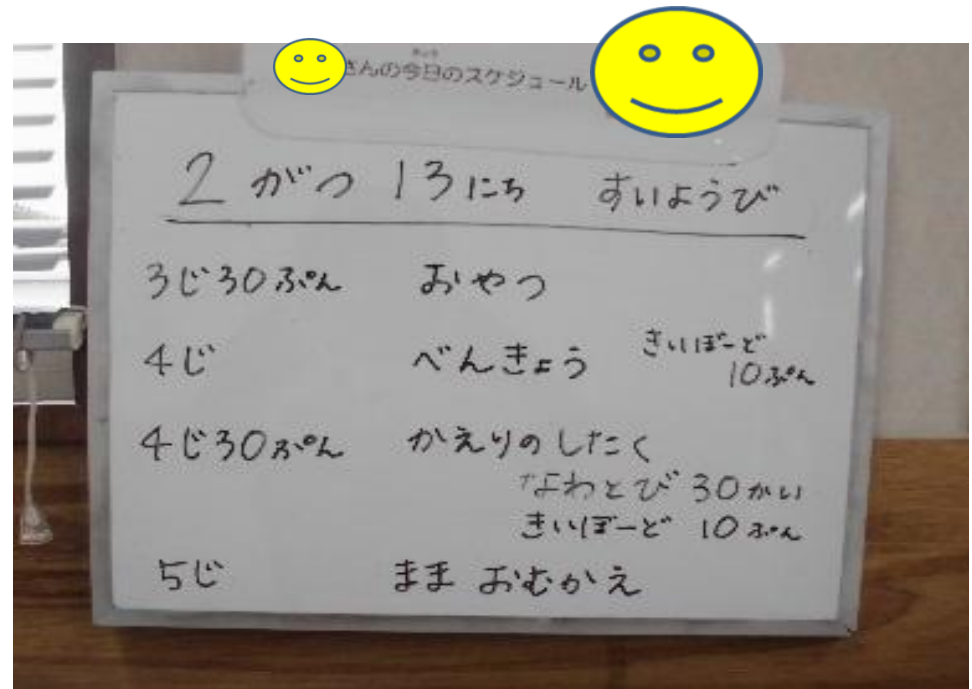 きょう
さんの今日のスケジュール
2がつ 13にち すいようび
3じ30ぷん おやつ
4じ べんきょう きいぼーど
10ぷん
4じ30ぷん かえりのしたく
なわとび 30かい
きいぼーど 10ぷん
5じ まま おむかえ